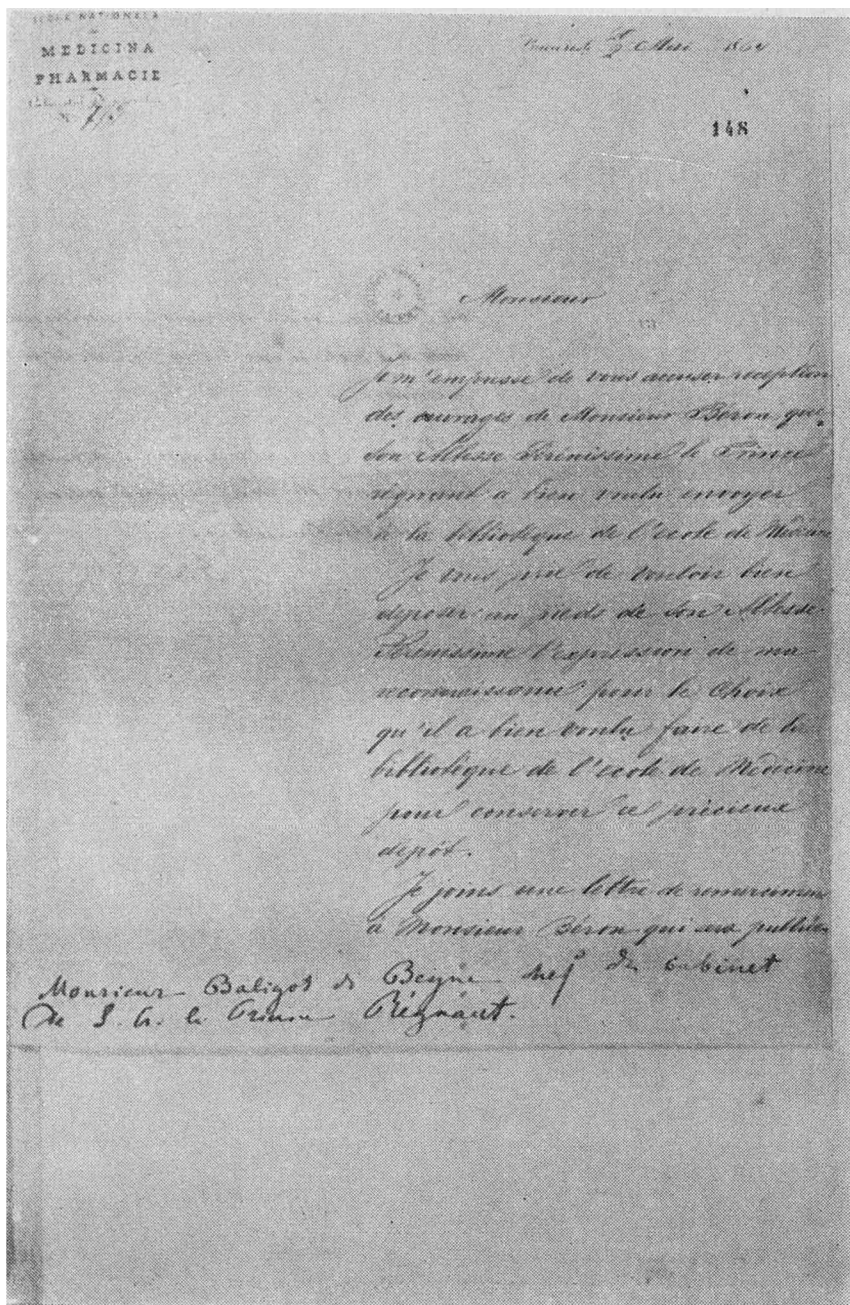 MEDICINA
PHARMACIE
148
Monsieur
Je m'empresse de vous accuser reception
des ouvrages de Monsieur Béron, que
Son Altesse Sérénissime le Prince
régnant a bien voulu envoyer
à la bibliotèque de l'ecole de Médecine
Je vous prie de vouloir bien
déposer au pieds de Son Altesse
Sérénissime l'expression de ma
reconnaissance pour le choix
qu'il a bien voulu faire de la
bibliotèque de l'ecole de Médecine
pour conserver ce précieux
dépôt.
Je joins une lettre de remerciments
à Monsieur Béron qui sera publiée
Monsieur Baligot de Beyne chef du cabinet
de S. A. le Prince Régnant.